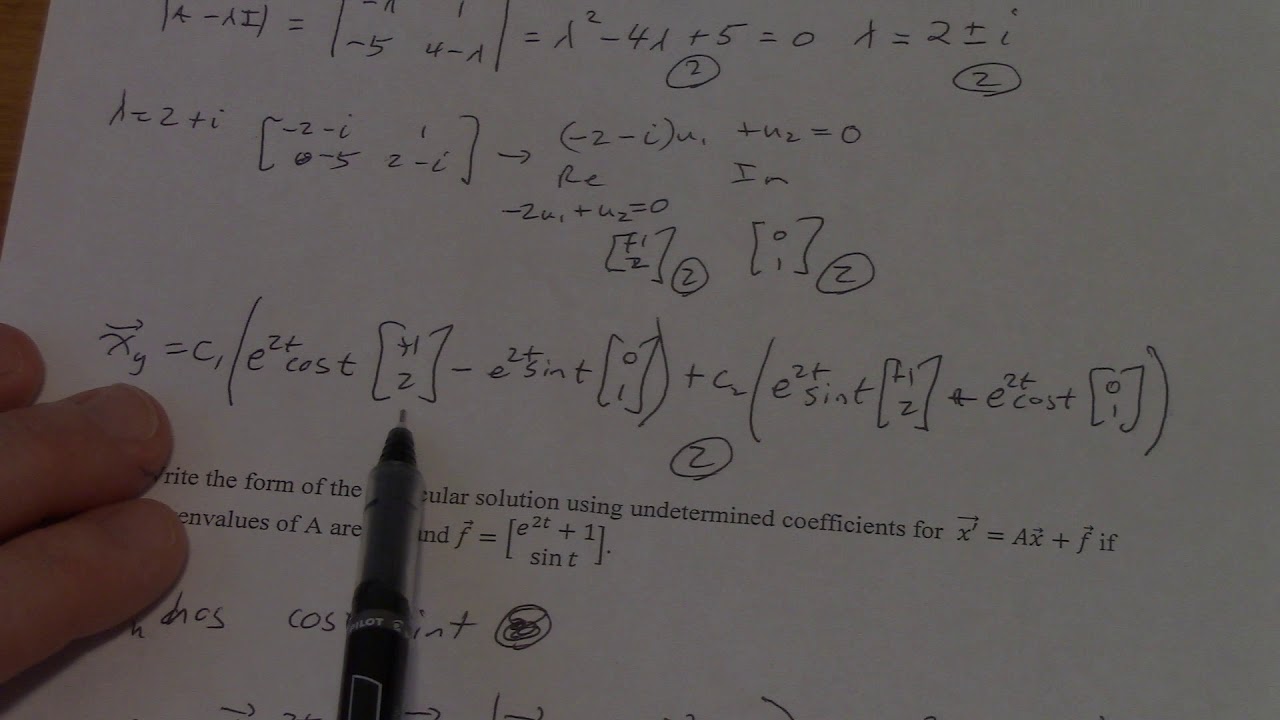 |A - λI| = | -λ 1 | = λ² - 4λ + 5 = 0 λ = 2 ± i
| -5 4-λ |
② ②
λ = 2 + i [ -2-i 1 ] → (-2-i)u₁ + u₂ = 0
[ -5 2-i ] Re Im
-2u₁ + u₂ = 0
[+1 2] ② [0 1] ②
x⃗ = c₁(e^{2t} cos t [+1 2] - e^{2t} sin t [0 1]) + c₂(e^{2t} sin t [+1 2] + e^{2t} cos t [0 1])
②
rite the form of the cular solution using undetermined coefficients for x⃗' = Ax⃗ + f⃗ if
envalues of A are nd f⃗ = [e^{2t} + 1 sin t].
h has cos int
PILOT